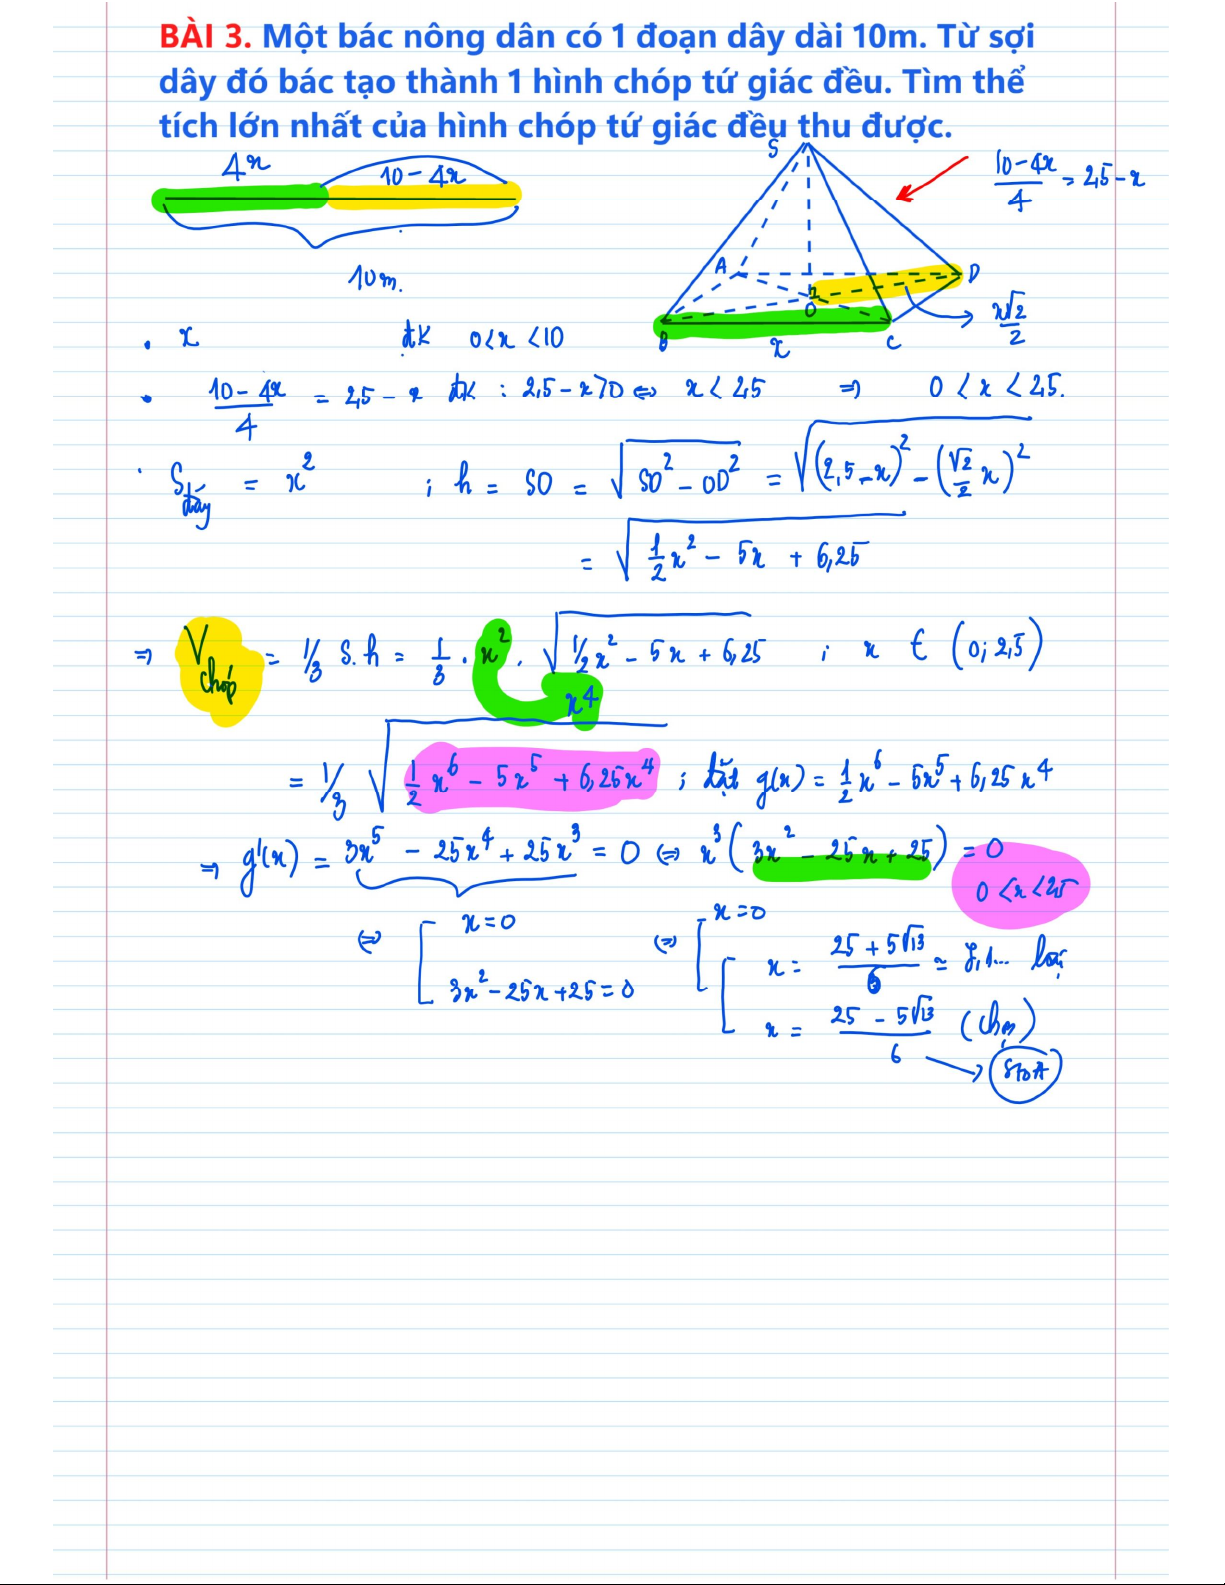 BÀI 3. Một bác nông dân có 1 đoạn dây dài 10m. Từ sợi
dây đó bác tạo thành 1 hình chóp tứ giác đều. Tìm thể
tích lớn nhất của hình chóp tứ giác đều thu được.
4x
10 - 4x
10m.
S
A
D
I
O
B
C
x
(10-4x)/4 = 2,5-x
x√2/2
• x đk 0<x<10
• (10-4x)/4 = 2,5 - x đk : 2,5-x>0 ⇔ x < 2,5 ⇒ 0 < x < 2,5.
• S đáy = x² ; h = SO = √(SD² - OD²) = √((2,5-x)² - (√2/2 x)²)
= √(1/2 x² - 5x + 6,25)
⇒ V chóp = 1/3 S.h = 1/3 . x² . √(1/2 x² - 5x + 6,25) ; x ∈ (0; 2,5)
x⁴
= 1/3 √(1/2 x⁶ - 5x⁵ + 6,25x⁴) ; đặt g(x) = 1/2 x⁶ - 5x⁵ + 6,25x⁴
⇒ g'(x) = 3x⁵ - 25x⁴ + 25x³ = 0 ⇔ x³(3x² - 25x + 25) = 0
0 < x < 2,5
⇔ [ x = 0
3x² - 25x + 25 = 0
⇔ [ x = 0
x = (25 + 5√13)/6 ≃ 7,1... loại
x = (25 - 5√13)/6 (chọn)
→ STOA